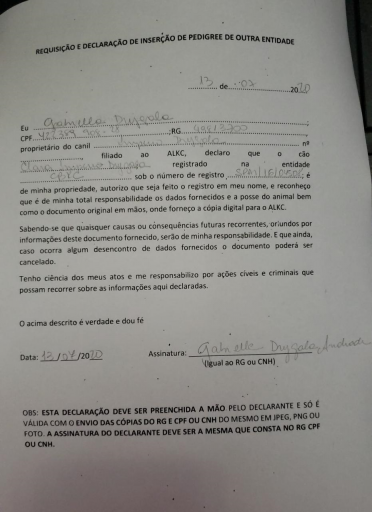 REQUISIÇÃO E DECLARAÇÃO DE INSERÇÃO DE PEDIGREE DE OUTRA ENTIDADE
13 de 07 2020
Eu Gabrielle Drygala
CPF ;RG
proprietário do canil Drygala nº
filiado ao ALKC, declaro que o cão
registrado na entidade
sob o número de registro é
de minha propriedade, autorizo que seja feito o registro em meu nome, e reconheço
que é de minha total responsabilidade os dados fornecidos e a posse do animal bem
como o documento original em mãos, onde forneço a cópia digital para o ALKC.
Sabendo-se que quaisquer causas ou consequências futuras recorrentes, oriundos por
informações deste documento fornecido, serão de minha responsabilidade. E que ainda,
caso ocorra algum desencontro de dados fornecidos o documento poderá ser
cancelado.
Tenho ciência dos meus atos e me responsabilizo por ações cíveis e criminais que
possam recorrer sobre as informações aqui declaradas.
O acima descrito é verdade e dou fé
Data: 13/07/2020 Assinatura: Gabrielle Drygala Andrade
(Igual ao RG ou CNH)
OBS: ESTA DECLARAÇÃO DEVE SER PREENCHIDA A MÃO PELO DECLARANTE E SÓ É
VÁLIDA COM O ENVIO DAS CÓPIAS DO RG E CPF OU CNH DO MESMO EM JPEG, PNG OU
FOTO. A ASSINATURA DO DECLARANTE DEVE SER A MESMA QUE CONSTA NO RG CPF
OU CNH.